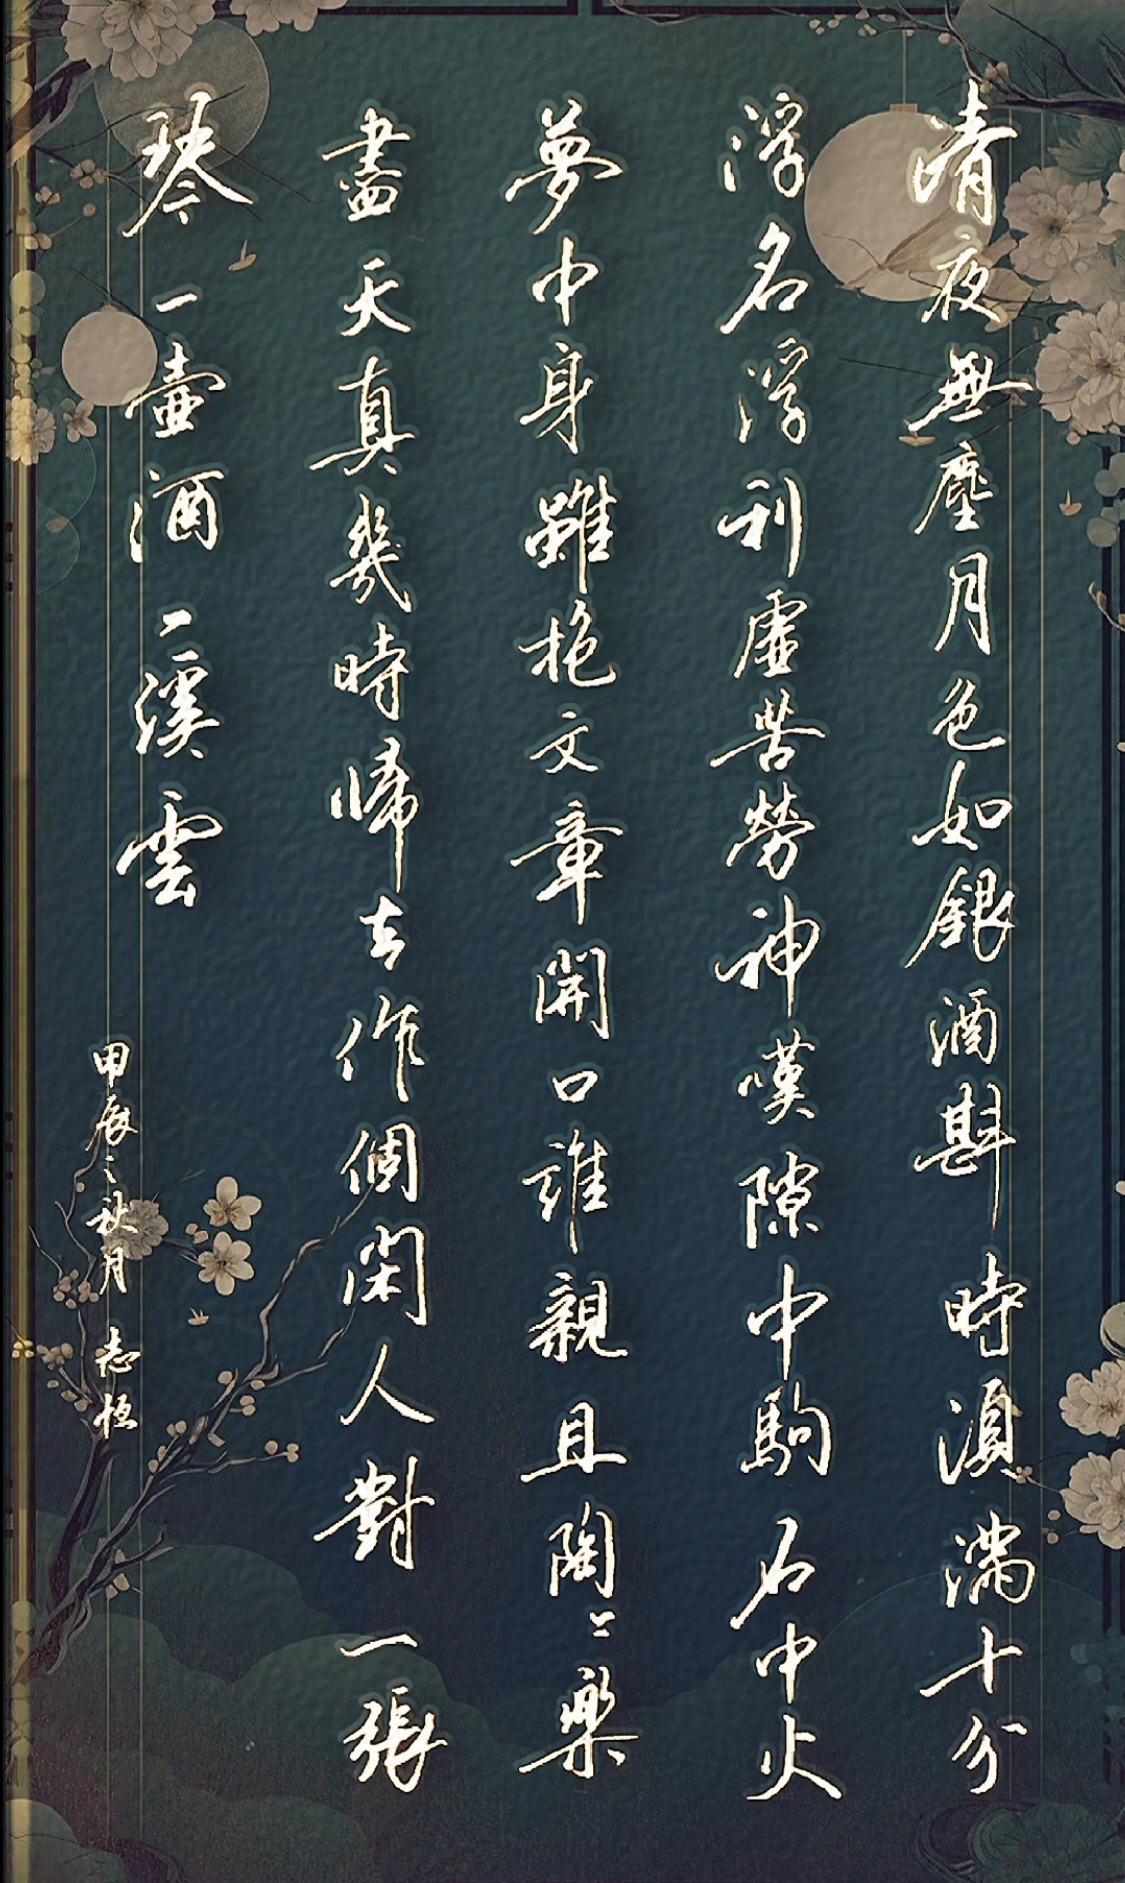 清夜無塵月色如銀酒斟時須滿十分
浮名浮利虛苦勞神嘆隙中駒石中火
夢中身雖抱文章開口誰親且陶〻樂
盡天真幾時歸去作個閑人對一張
琴一壺酒一溪雲
甲辰之秋月 志恒